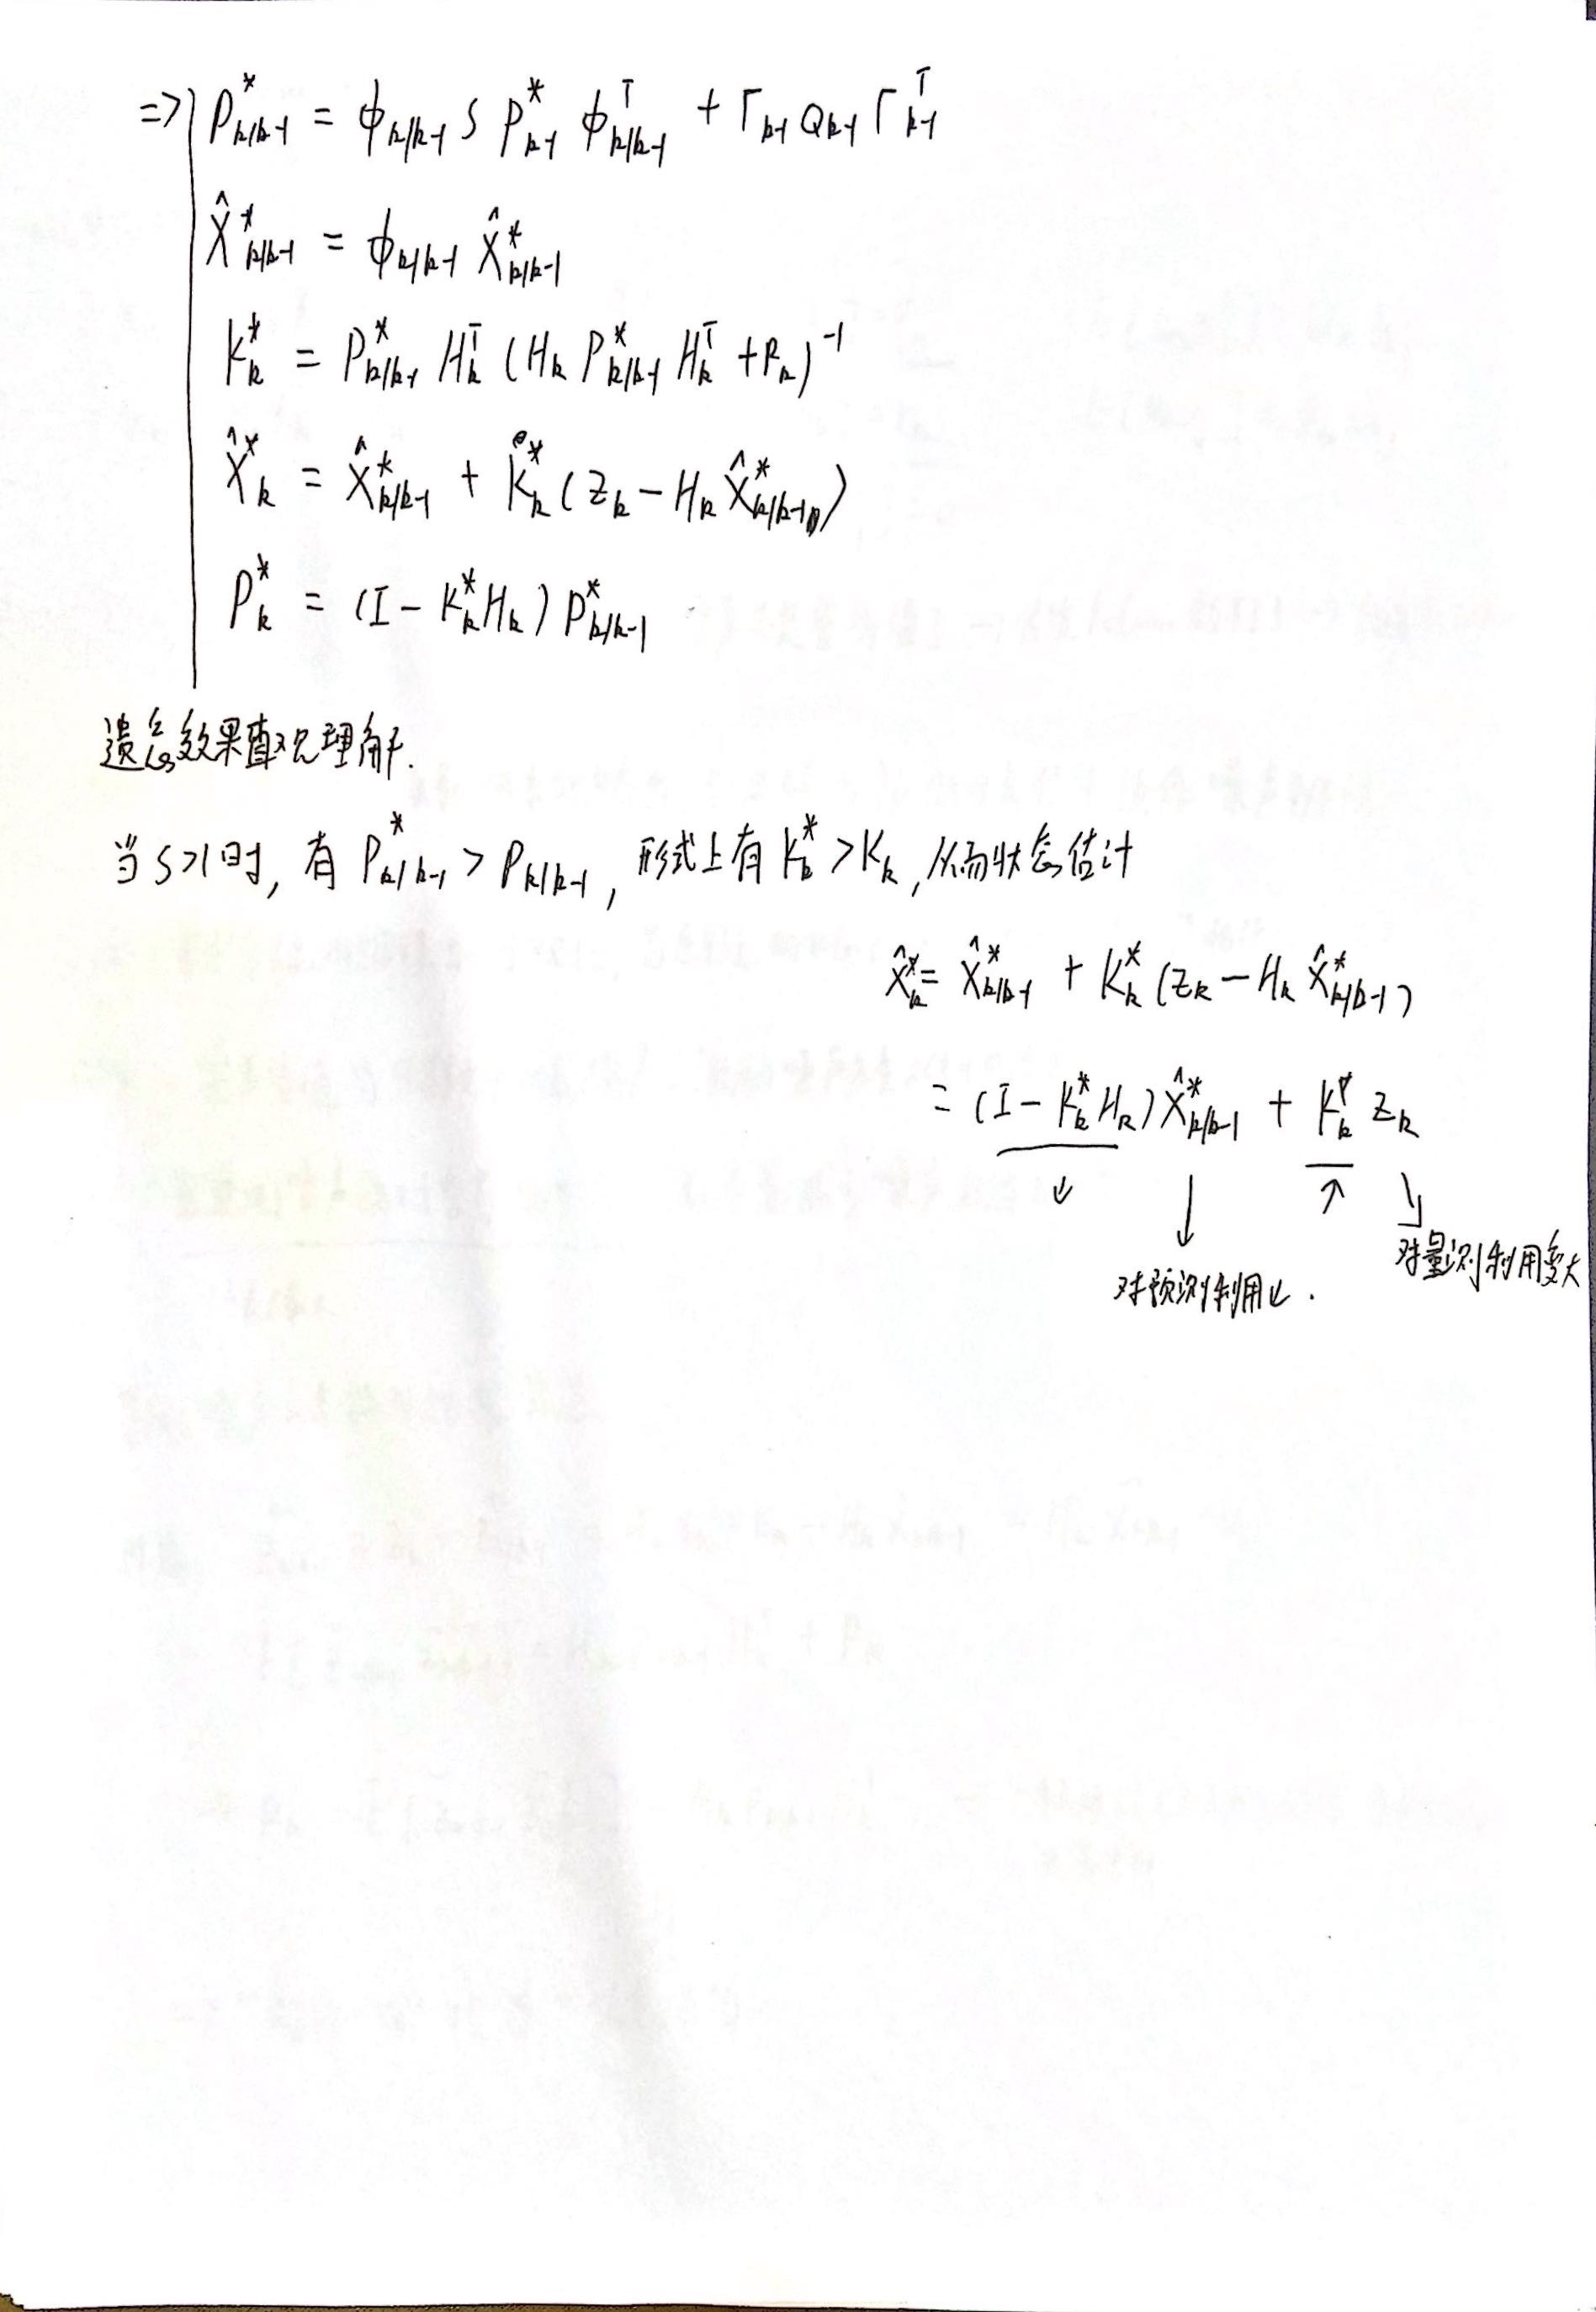 ⇒ P*_{k/k-1} = φ_{k/k-1} S P*_{k-1} φ^T_{k/k-1} + Γ_{k-1} Q_{k-1} Γ^T_{k-1}
X̂*_{k/k-1} = φ_{k/k-1} X̂*_{k/k-1}
K*_k = P*_{k/k-1} H^T_k (H_k P*_{k/k-1} H^T_k + R_k)^{-1}
X̂*_k = X̂*_{k/k-1} + K*_k (Z_k - H_k X̂*_{k/k-1})
P*_k = (I - K*_k H_k) P*_{k/k-1}
遗忘效果直观理解.
当 S>1时, 有 P*_{k/k-1} > P_{k/k-1}, 形式上有 K*_k > K_k, 从而状态估计
X̂*_k = X̂*_{k/k-1} + K*_k (Z_k - H_k X̂*_{k/k-1})
= (I - K*_k H_k) X̂*_{k/k-1} + K*_k Z_k
↓ ↓ ↑ ↘
对量测利用变大
对预测利用↓.